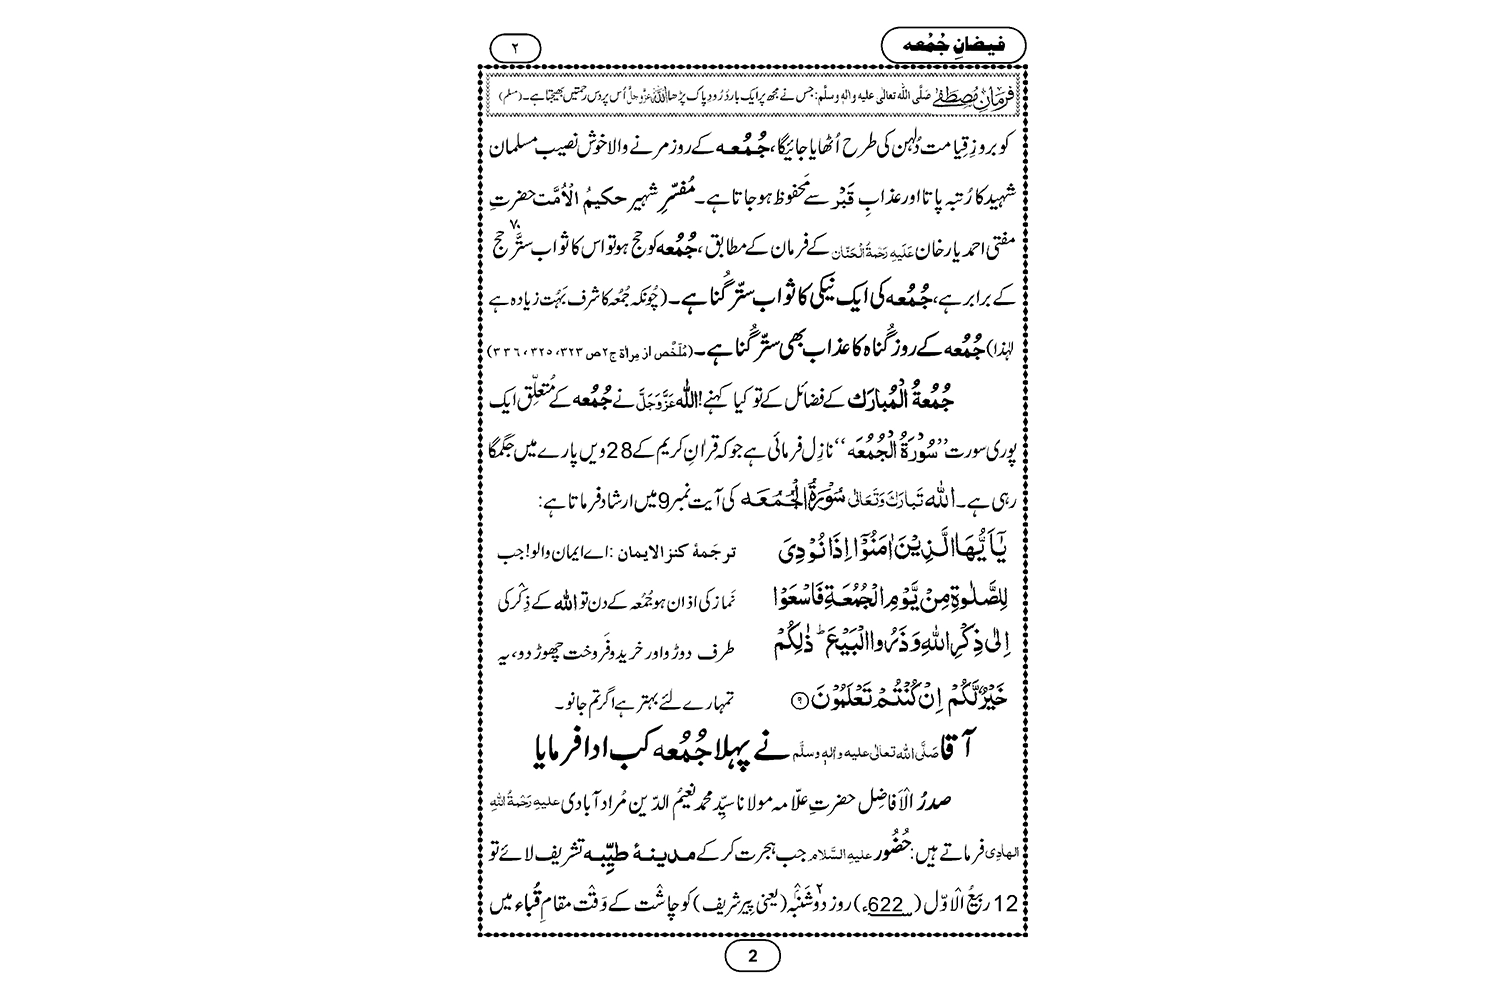 فیضانِ جُمُعہ
۲
فرمانِ مصطفٰے صَلَّی اللہ تعالٰی علیہ واٰلہٖ وسلَّم: جس نے مجھ پر ایک بار دُرُودِ پاک پڑھا اللہ عَزَّوَجَلَّ اُس پر دس رَحمتیں بھیجتا ہے۔ (مسلم)
کو بروزِ قِیامت دُلہن کی طرح اُٹھایا جائیگا، جُمُعہ کے روز مرنے والا خوش نصیب مسلمان
شہید کا رُتبہ پاتا اور عذابِ قَبْر سے مَحفوظ ہو جاتا ہے۔ مُفَسِّرِ شہیر حکیمُ الْاُمَّت حضرتِ
مفتی احمد یار خان عَلَیہِ رَحْمَۃُ الْحَنّان کے فرمان کے مطابق، جُمُعہ کو حج ہو تو اس کا ثواب ستَّر۷۰ حج
کے برابر ہے، جُمُعہ کی ایک نیکی کا ثواب ستّر گُنا ہے۔ (چُونکہ جُمُعہ کا شرف بَہُت زیادہ ہے
لہٰذا) جُمُعہ کے روز گُناہ کا عذاب بھی ستّر گُنا ہے۔ (مُلَخَّص از مِراٰۃ ج۲ص ۳۲۳، ۳۲۵، ۳۳۶)
جُمُعۃُ الْمُبارَک کے فضائل کے تو کیا کہنے! اللہ عَزَّوَجَلَّ نے جُمُعہ کے مُتَعلِّق ایک
پوری سورت ’’سُوْرَۃُ الْجُمُعَہ‘‘ نازِل فرمائی ہے جو کہ قراٰنِ کریم کے 28ویں پارے میں جگمگا
رہی ہے۔ اللہ تَبارَکَ وَتَعَالٰی سُوْرَۃُ الْجُمُعَہ کی آیت نمبر 9 میں ارشاد فرماتا ہے:
یٰۤاَیُّهَا الَّذِیْنَ اٰمَنُوْۤا اِذَا نُوْدِیَ
ترجَمۂ کنزالایمان: اے ایمان والو! جب
لِلصَّلٰوةِ مِنْ یَّوْمِ الْجُمُعَةِ فَاسْعَوْا
نَماز کی اذان ہو جُمُعہ کے دن تو اللہ کے ذِکْر کی
اِلٰى ذِكْرِ اللّٰهِ وَ ذَرُوا الْبَیْعَؕ ذٰلِكُمْ
طرف دوڑو اور خرید و فَروخت چھوڑ دو، یہ
خَیْرٌ لَّكُمْ اِنْ كُنْتُمْ تَعْلَمُوْنَ ۹
تمہارے لئے بہتر ہے اگر تم جانو۔
آقا صَلَّی اللہ تعالٰی علیہ واٰلہٖ وسلَّم نے پہلا جُمُعہ کب ادا فرمایا
صدرُ الْاَفاضِل حضرتِ علّامہ مولانا سیِّد محمد نعیمُ الدّین مُراد آبادی علیہِ رَحْمَۃُ اللہِ
الھادِی فرماتے ہیں: حُضُور علیہِ السَّلام جب ہجرت کر کے مدینۂ طیِّبہ تشریف لائے تو
12 ربیعُ الْاوّل (622ء) روز دوشَنْبَہ۲ (یعنی پیر شریف) کو چاشت کے وَقْت مقامِ قُباء میں
2